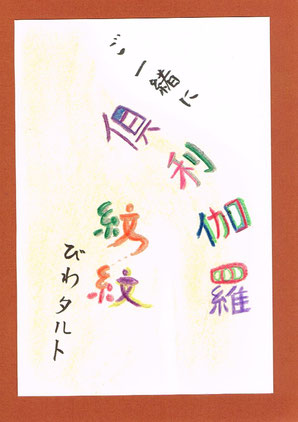 ご一緒に
倶利伽羅
紋紋
びわタルト